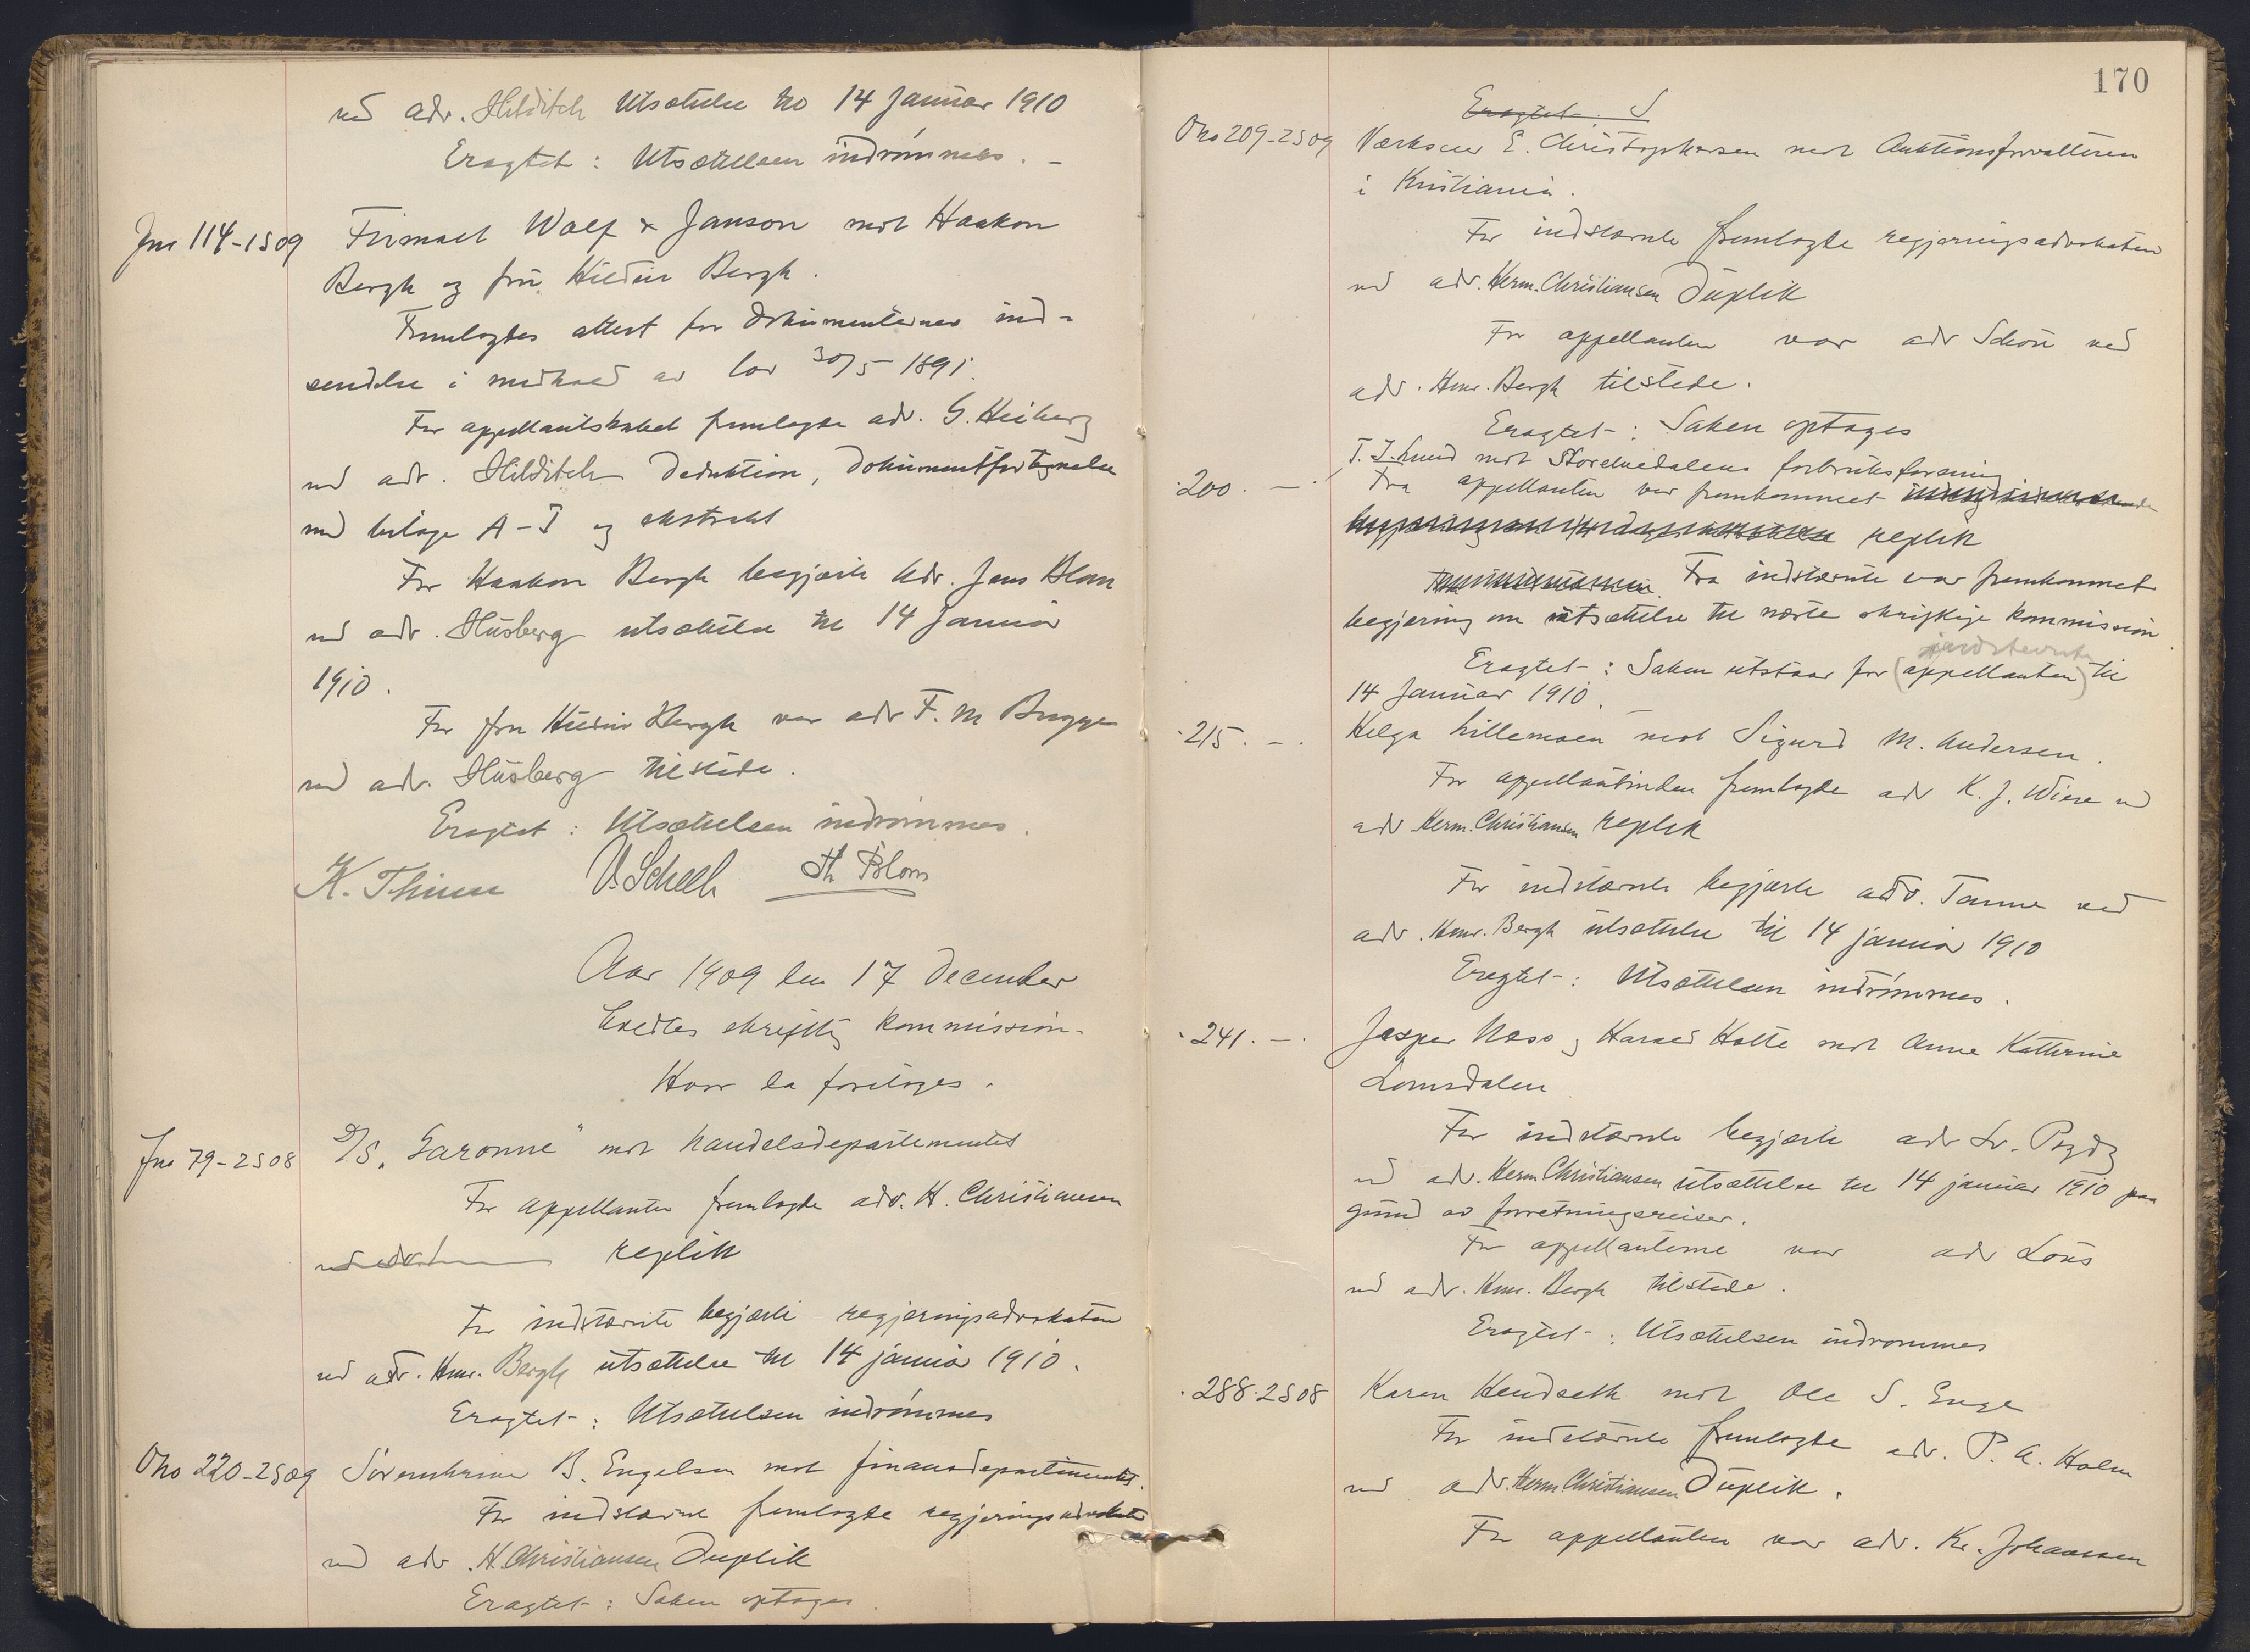 ved adv. Hilditch Utsættelse til 14 Januar 1910
Eragtet: Utsættelsen indrømmes. -
Jno 114-1S09 Firmaet Wolf & Janson mot Haakon
Bergh og fru Hildur Bergh.
Fremlagdes attest for dokumenternes ind-
sendelse i medhold av lov 30/5-1891.
For appellantskabet fremlagde adv. G. Heiberg
ved adv. Hilditch Deduktion, Dokumentfortegnelse
med bilage A-I og ekstrakt
For Haakon Bergh begjærte Adv. Jens Blom
ved adv. Husberg utsættelse til 14 Januar
1910.
For fru Hildur Bergh var adv F. M Bugge
ved adv. Husberg tilstede.
Eragtet: Utsættelsen indrømmes.
K. Thinn V. Scheel Th Blom
Aar 1909 den 17 December
holdtes skriftlig kommission.
Hvor da foretoges.
Jno 79-2S08 D/S. "Garonne" mot Handelsdepartementet
For appellanten fremlagde adv. H. Christiansen
replik
For indstævnte begjærte regjeringsadvokaten
ved adv. Hmr. Bergh utsættelse til 14 januar 1910.
Eragtet: Utsættelsen indrømmes
Ono 220-2S09 Sorenskriver B. Engelsen mot finansdepartementet.
For indstævnte fremlagde regjeringsadvokaten
ved adv. H. Christiansen Duplik
Eragtet: Saken optages.
170
Eragtet: S
Ono 209-2S09 Værkseier E. Christophersen mot Auktionsforvalteren
i Kristiania.
For indstævnte fremlagde regjeringsadvokaten
ved adv. Herm. Christiansen Duplik
For appellanten var adv Schou ved
adv. Hmr. Bergh tilstede.
Eragtet: Saken optages
T. J. Lund mot Storelvedalens forbruksforening
·200. — . Fra appellanten var fremkommet
replik
Fra indstævnte var fremkommet
begjæring om utsættelse til næste skriftlige kommission.
indstevnte
Eragtet: Saken utstaar for (appellanten) til
14 Januar 1910.
·215. — . Helga Lillemoen mot Sigurd M. Andersen.
For appellantinden fremlagde adv K. J. Wiese ved
adv Herm. Christiansen replik
For indstævnte begjærte adv. Tanne ved
adv. Hmr. Bergh utsættelse til 14 januar 1910
Eragtet: Utsættelsen indrømmes.
·241. — . Jesper Næss og Harald Holte mot Anne Katterine
Lomsdalen
For indstævnte begjærte adv Lv. Brydz
ved adv. Herm Christiansen utsættelse til 14 januar 1910 paa
grund av forretningsreiser.
For appellanterne var adv Lous
ved adv. Hmr. Bergh tilstede.
Eragtet: Utsættelsen indrømmes
·288·2S08 Karen Hendseth mot Ole S. Enge
For indstævnte fremlagde adv. P. A. Holm
ved adv. Herm Christiansen Duplik.
For appellanten var adv. Kr. Johanssen